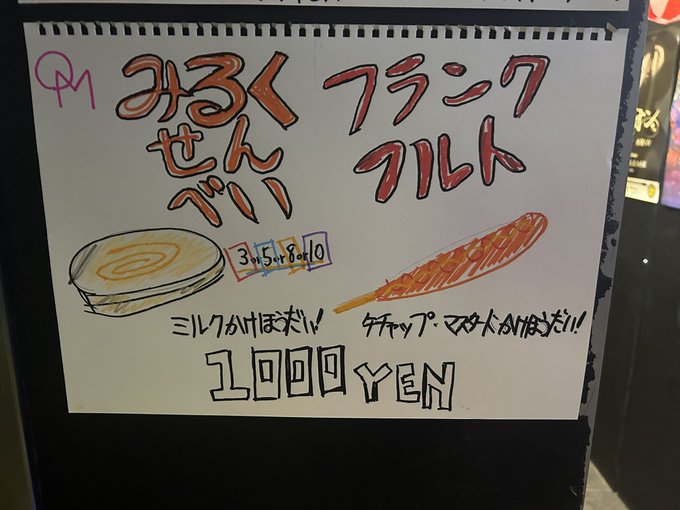 QM
みるく
せん
べい
フランク
フルト
3or5or8or10
ミルクかけほうだい!
ケチャップ・マスタードかけほうだい!
1000YEN